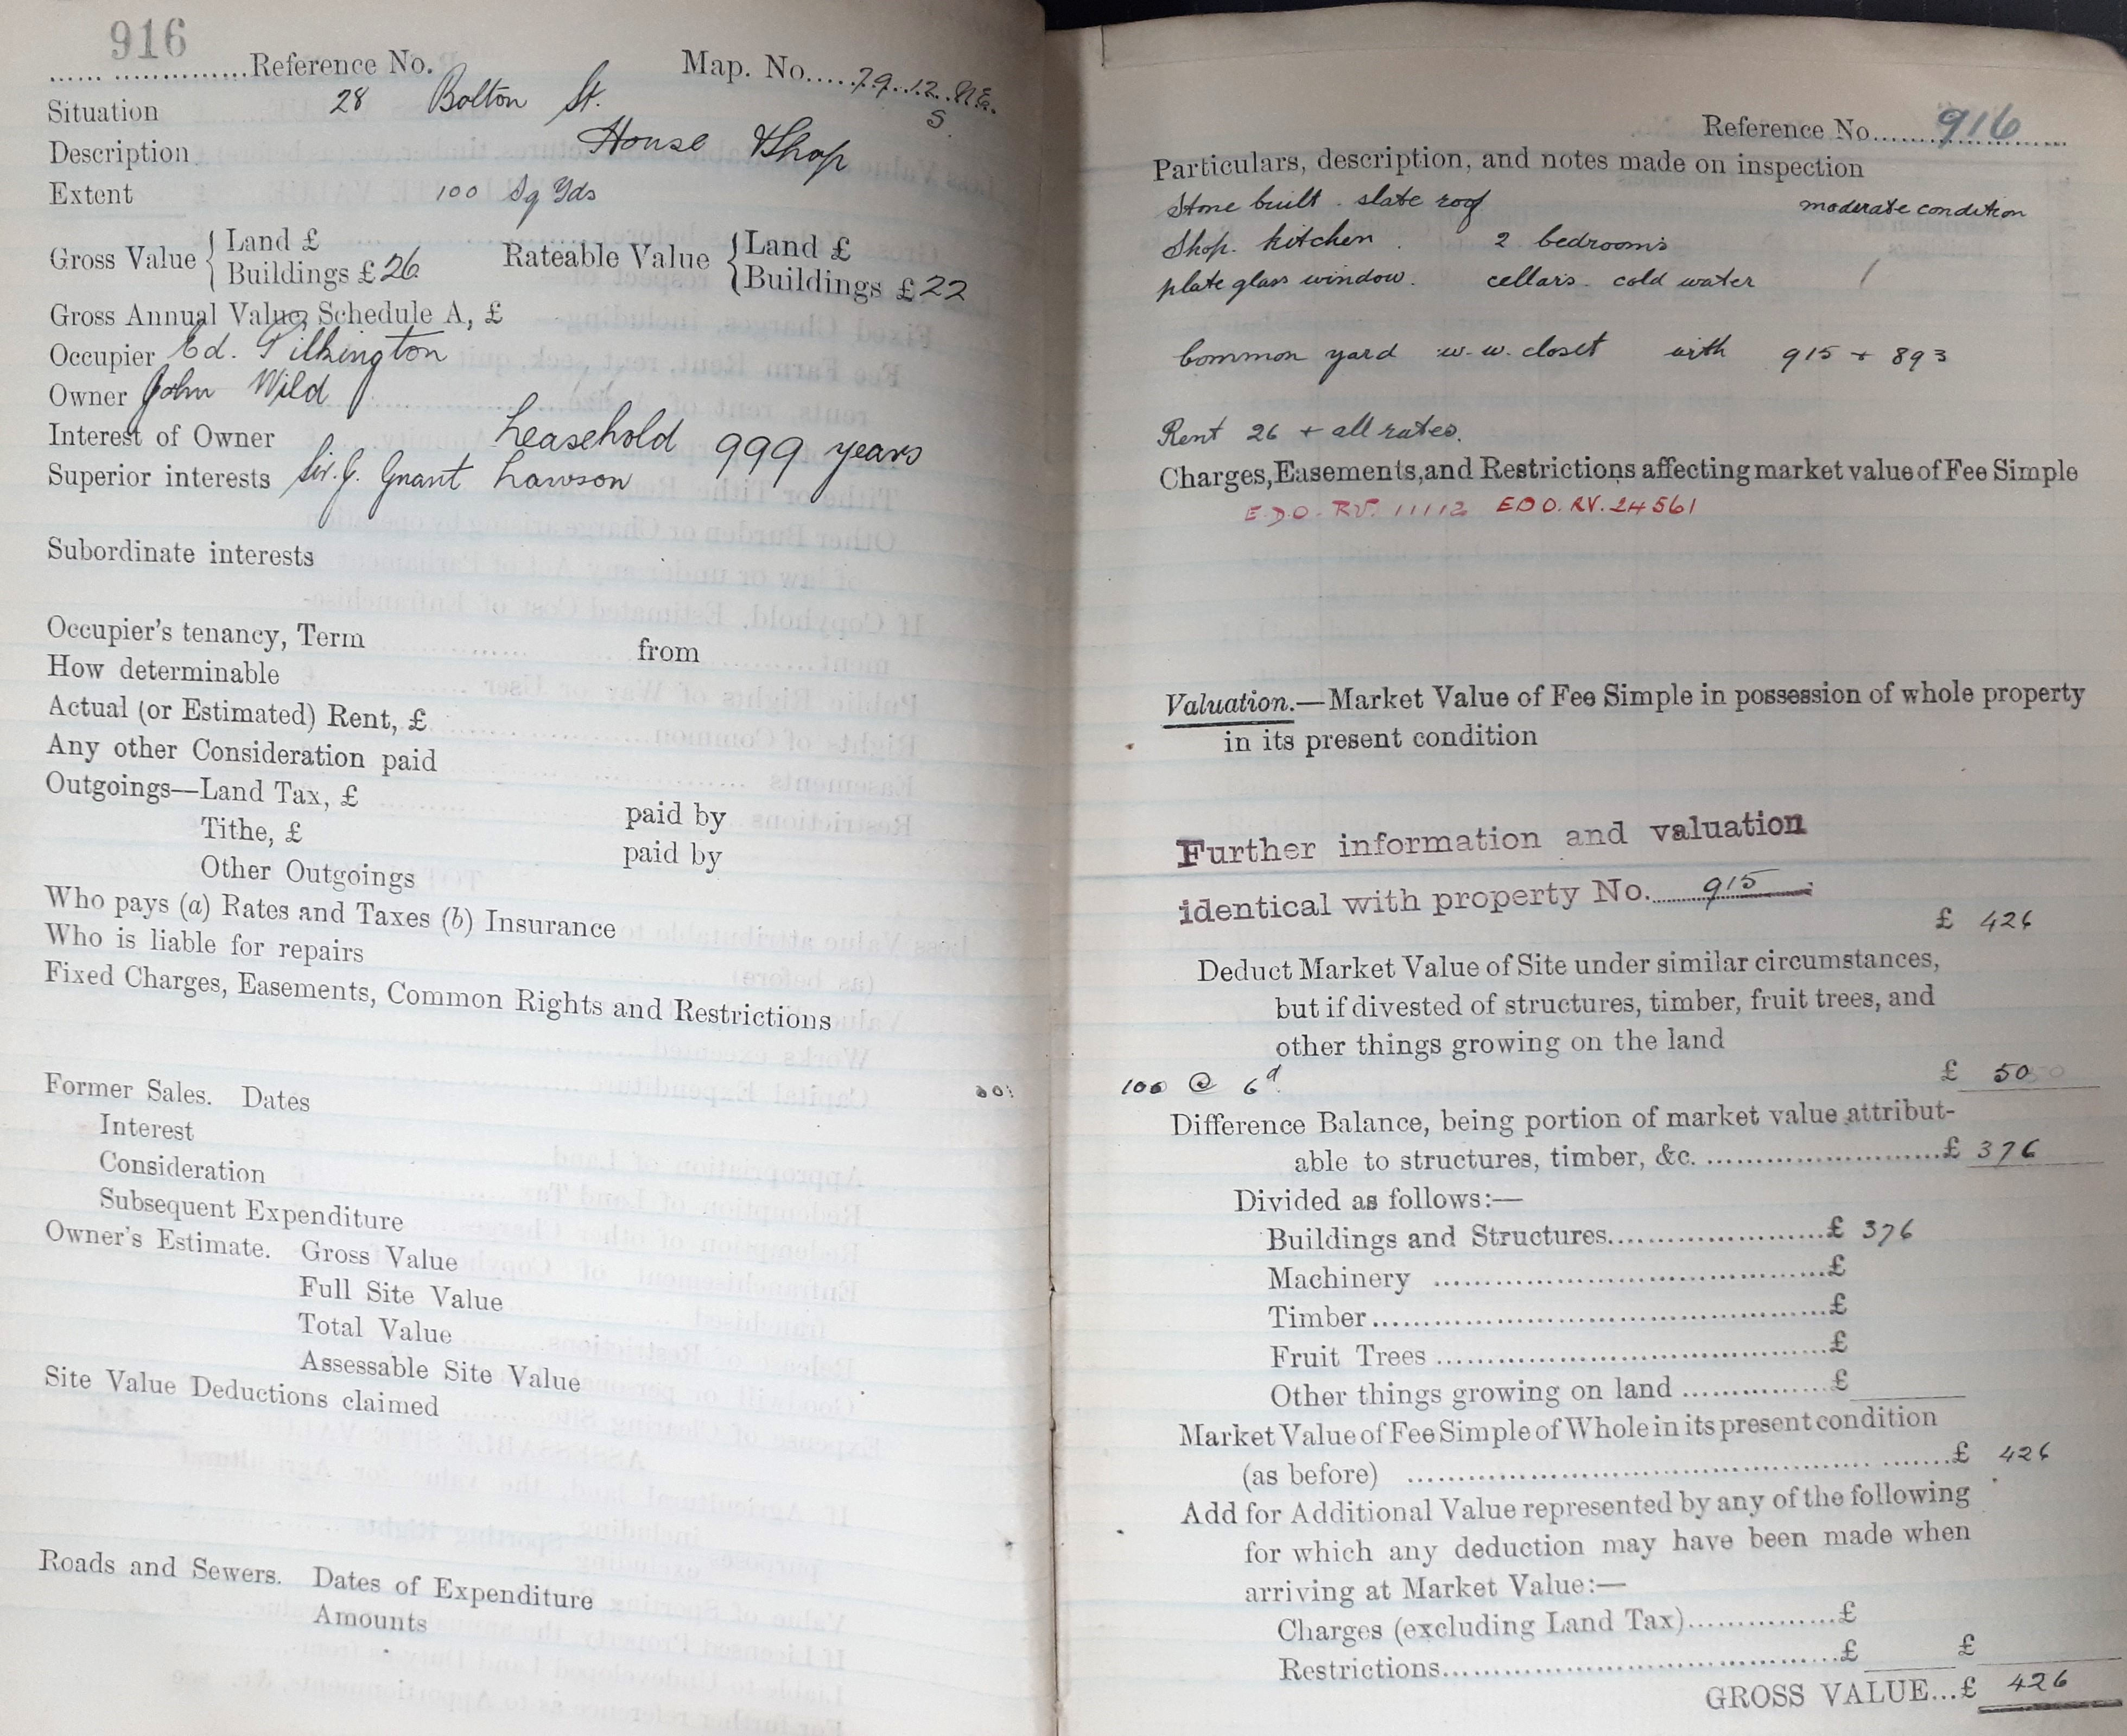 916
Reference No. Map. No. 79.12.NE.
S.
Situation 28 Bolton St.
Description House & Shop
Extent 100 Sq Yds
Gross Value { Land £ Rateable Value { Land £
Buildings £ 26 Buildings £ 22
Gross Annual Value, Schedule A, £
Occupier Ed. Pilkington
Owner John Wild
Interest of Owner Leasehold 999 years
Superior interests Sir. J. Grant Lawson
Subordinate interests
Occupier's tenancy, Term from
How determinable
Actual (or Estimated) Rent, £
Any other Consideration paid
Outgoings—Land Tax, £ paid by
Tithe, £ paid by
Other Outgoings
Who pays (a) Rates and Taxes (b) Insurance
Who is liable for repairs
Fixed Charges, Easements, Common Rights and Restrictions
Former Sales. Dates
Interest
Consideration
Subsequent Expenditure
Owner's Estimate. Gross Value
Full Site Value
Total Value
Assessable Site Value
Site Value Deductions claimed
Roads and Sewers. Dates of Expenditure
Amounts
Reference No. 916
Particulars, description, and notes made on inspection
Stone built. slate roof moderate condition
Shop. kitchen. 2 bedrooms
plate glass window. cellars. cold water
Common yard w.w. closet with 915 + 893
Rent 26 + all rates.
Charges, Easements, and Restrictions affecting market value of Fee Simple
E.D.O. RV. 11112 EDO. RV. 24561
Valuation.—Market Value of Fee Simple in possession of whole property
in its present condition
Further information and valuation
identical with property No. 915
£ 426
Deduct Market Value of Site under similar circumstances,
but if divested of structures, timber, fruit trees, and
other things growing on the land
100 @ 6d £ 50
Difference Balance, being portion of market value attribut-
able to structures, timber, &c. £ 376
Divided as follows:—
Buildings and Structures £ 376
Machinery £
Timber £
Fruit Trees £
Other things growing on land £
Market Value of Fee Simple of Whole in its present condition
(as before) £ 426
Add for Additional Value represented by any of the following
for which any deduction may have been made when
arriving at Market Value:—
Charges (excluding Land Tax) £
Restrictions £ £
GROSS VALUE... £ 426